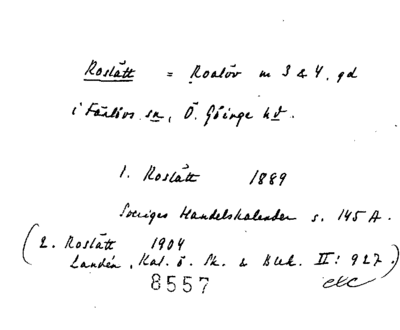 Roslätt = Roalöv m 3 & 4, gd
i Färlövs sn, Ö. Göinge hd.
1. Roslätt 1889
Sveriges Handelskalender s. 145 A.
(2. Roslätt 1904
Landén, Kal. ö. Sk. & Blek. II: 927.)
8557